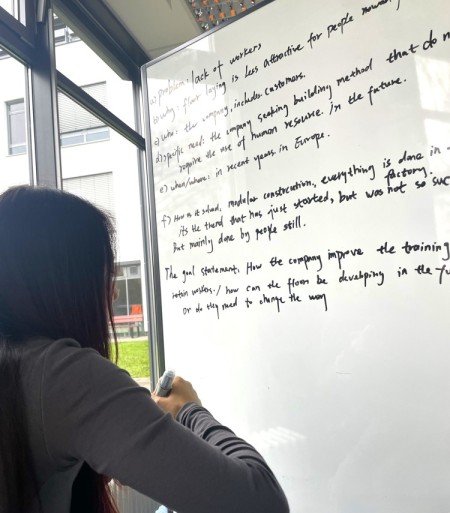 a) problem: lack of workers
b) why: floor laying is less attractive for people nowaday
c) who: the company, includes customers.
d) specific need: the company seeking building method that do n
require the use of human resource. in the future.
e) when/where: in recent years. in Europe.
f) How is it solved, modular construcation, everything is done in
factory.
its the trend that has just started, but was not so suc
But mainly done by people still.
The goal statement. How the company improve the training
retain workers./ how can the floor be developing in the fu
or do they need to change the way